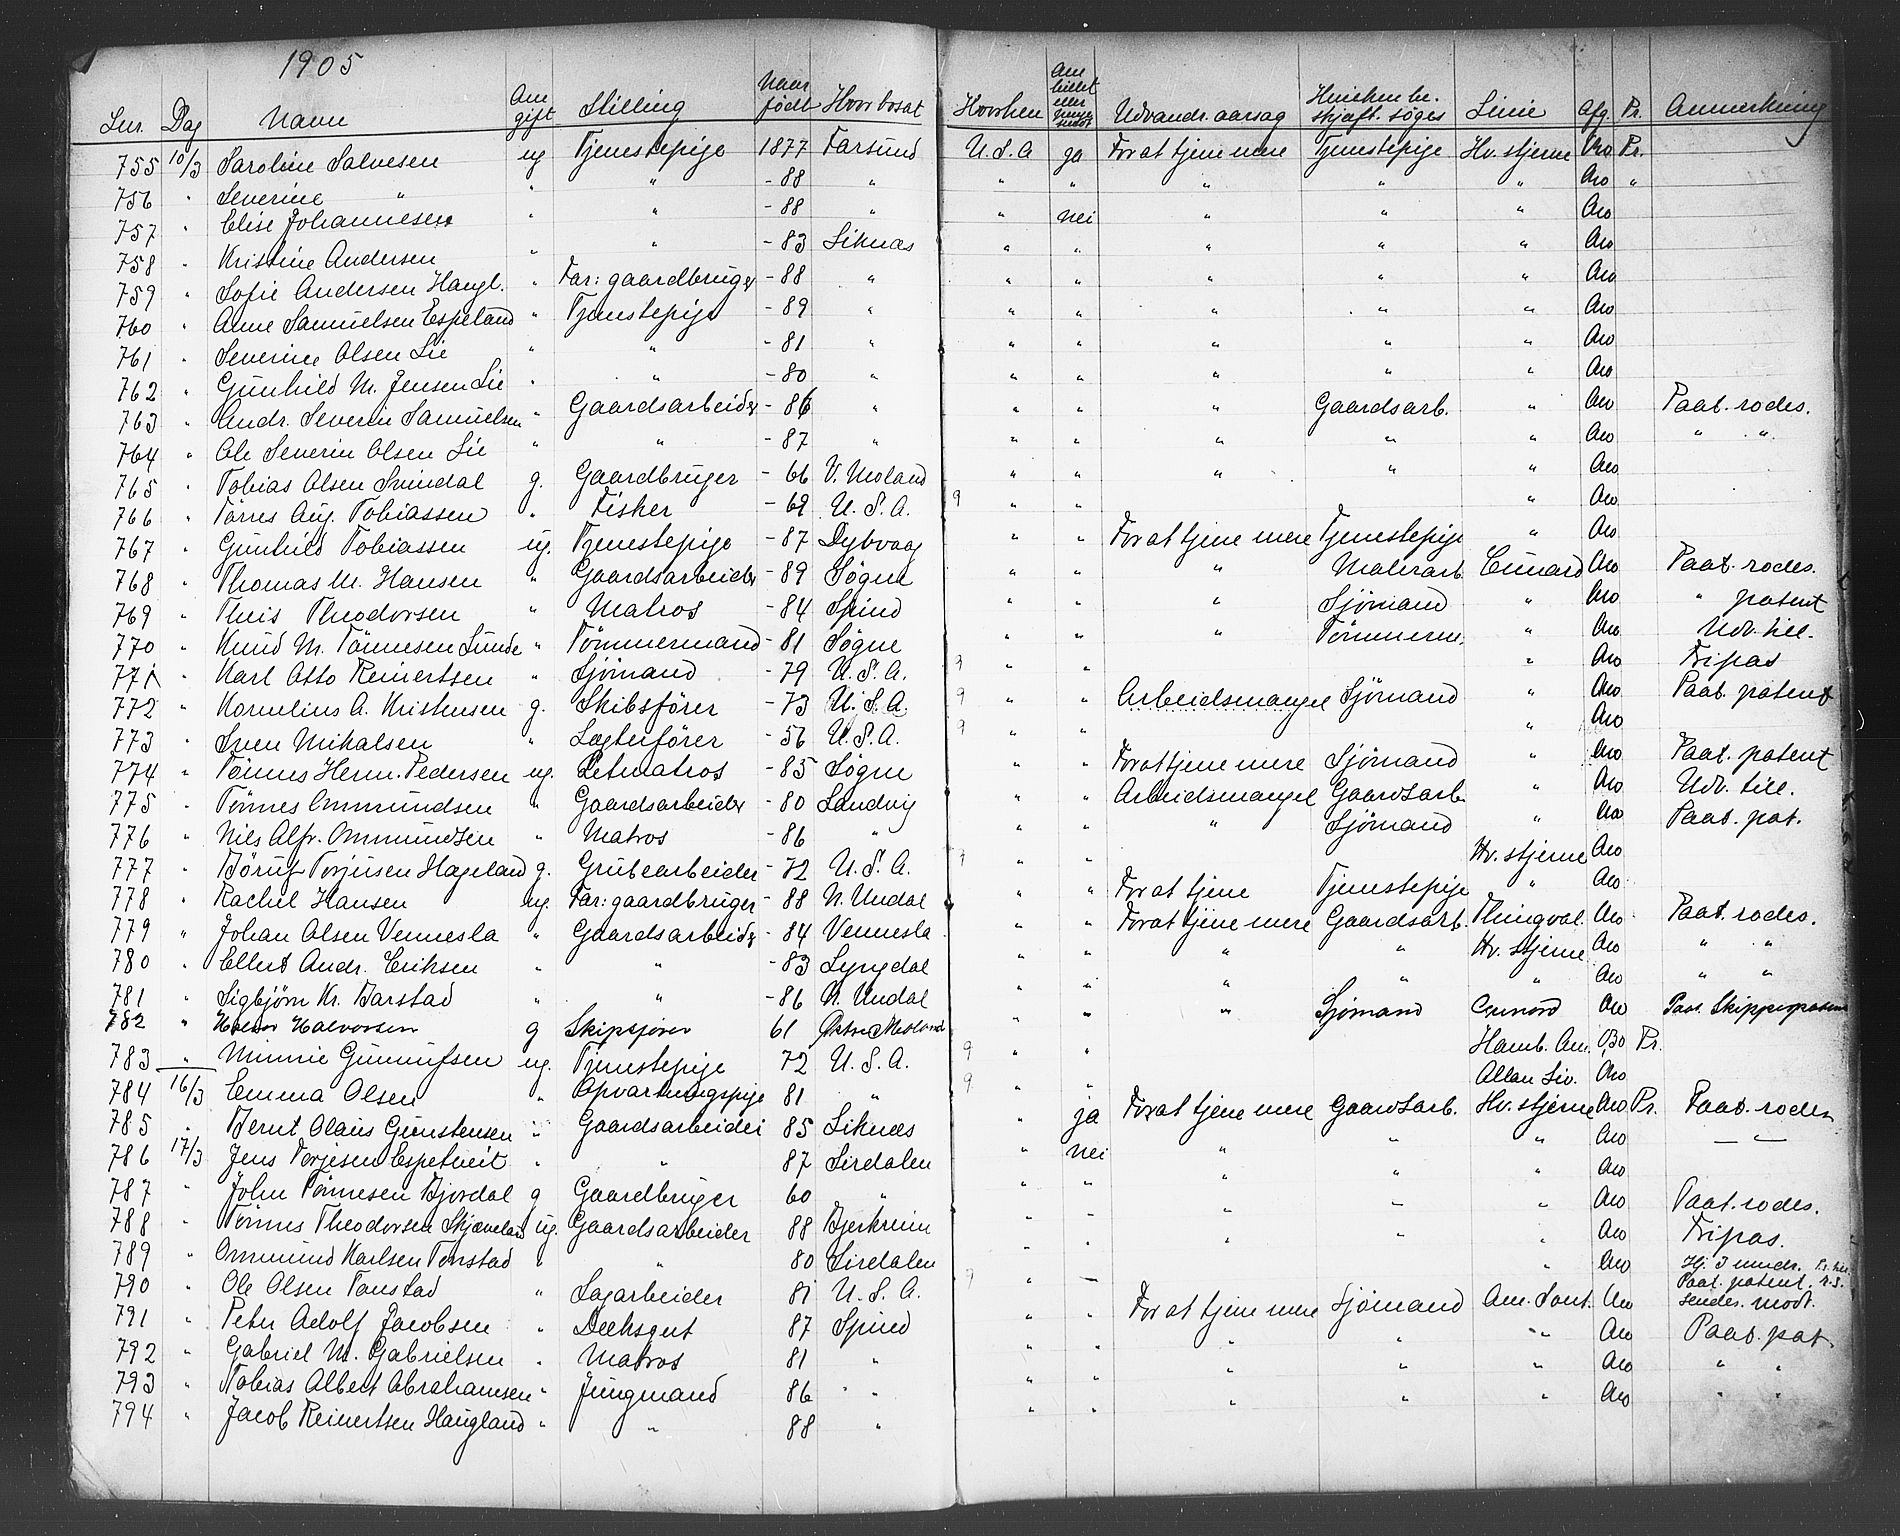 1905
Lnr. Dag Navn Om gift Stilling Naar født Hvor bosat Hvorhen Om billet eller Udvandr. aarsag Hvilken be. skjæft. søges Linie Afg. Pr. Anmerkning
755 10/3 Saroline Salvesen ug Tjenestepige 1877 Farsund U.S.A ja For at tjene mere Tjenestepige Hv. stjerne Aro Pr.
756 " Severine " " " -88 " " " " " " Aro "
757 " Elise Johannesen " " -88 " " nei " " " Aro
758 " Kristine Andersen " " -83 Siknæs " " " " " Aro
759 " Sofie Andersen Haugl. " Far: gaardbruger -88 " " " " " " Aro
760 " Anne Samuelsen Espeland " Tjenestepige -89 " " " " " " Aro
761 " Severine Olsen Lie " " -81 " " " " " " Aro
762 " Gunhild M. Jensen Lie " " -80 " " " " " " Aro
763 " Andr. Severin Samuelsen " Gaardsarbeider -86 " " " " Gaardsarb. " Aro Paab. rodes.
764 " Ole Severin Olsen Lie " " -87 " " " " " " Aro " "
765 " Tobias Olsen Svindal g. Gaardbruger -66 V. Moland " " " " " Aro
766 " Tørres Aug. Tobiassen " Fisker -69 U.S.A. 9 " " " Aro
767 " Gunhild Tobiassen ug. Tjenestepige -87 Dybvaag " " For at tjene mere Tjenestepige " Aro
768 " Thomas M. Hansen " Gaardsarbeider -89 Søgne " " " Malerarb. Cunard Aro Paab. rodes.
769 " Theis Theodorsen " Matros -84 Spind " " " Sjömand " Aro " patent
770 " Knud M. Tönnesen Lunde " Tömmermand -81 Søgne " " " Tömmerm. " Aro Udv. till.
771 " Karl Otto Reinertsen " Sjömand -79 U.S.A. 9 " " " Aro Fripas
772 " Kornelius A. Kristensen g. Skibsförer -73 U.S.A. 9 " " Arbeidsmangel Sjömand " Aro Paab. patent
773 " Sven Mikalsen " Lægterförer -56 U.S.A. 9 " " " Aro
774 " Tönnes Herm. Pedersen ug. Letmatros -85 Søgne " " For at tjene mere Sjömand " Aro Paab. patent
775 " Tönnes Ommundsen " Gaardsarbeider -80 Landvig " " Arbeidsmangel Gaardsarb. " Aro Udv. till.
776 " Nils Alfr. Ommundsen " Matros -86 " " " " Sjömand " Aro Paab. pat.
777 " Böruf Torjusen Hageland g. Grubearbeider -72 U.S.A. 9 " " Hv. stjerne Aro
778 " Rachel Hansen ug. Far: gaardbruger -88 N. Undal " " For at tjene Tjenestepige " Aro
779 " Johan Olsen Vennesla " Gaardsarbeider -84 Vennesla " " For at tjene mere Gaardsarb. Thingval. Aro Paab. rodes.
780 " Ellert Andr. Eriksen " " -83 Lyngdal " " " " Hv. stjerne Aro " "
781 " Sigbjörn Kr. Barstad " " -86 N. Undal " " " " " Aro " "
782 " Halvor Halvorsen g Skipsfører 61 Østre Moland " " " Sjömand Cunard Aro Paab. Skipperpatent
783 " Minnie Gunnufsen ug. Tjenestepige 72 U.S.A. 9 " " Hamb. Am. Bo Pr.
784 16/3 Emma Olsen " Opvartningspige 81 " 9 " " Allan Liv. Aro
785 " Bernt Olaus Gunstensen " Gaardsarbeider 85 Siknæs " ja For at tjene mere Gaardsarb. Hv. stjerne Aro Pr. Paab. rodes
786 17/3 Jens Torjesen Espetveit " " 87 Sirdalen " nei " " " Aro — " —
787 " John Tönnesen Bjordal g Gaardbruger 60 " " " " " " Aro
788 " Tönnes Theodorsen Skjæveland ug. Gaardsarbeider 88 Bjerkreim " " " " " Aro Paab. rodes.
789 " Ommund Karlsen Tonstad " " 80 Sirdalen " " " " " Aro Fripas.
790 " Ole Olsen Tonstad " Sagarbeider 81 U.S.A. 9 " — " Aro Hj. 3 mndr.
791 " Peter Adolf Jacobsen " Dæksgut 87 Spind " " For at tjene mere Sjömand Am. Sont. Aro Paab. patent. sendes. modt.
792 " Gabriel M. Gabrielsen " Matros 81 " " " " " " Aro Paab. pat.
793 " Tobias Albert Abrahamsen " Jungmand 86 " " " " " " Aro " "
794 " Jacob Reinertsen Haugland " " 88 " " " " " " Aro " "